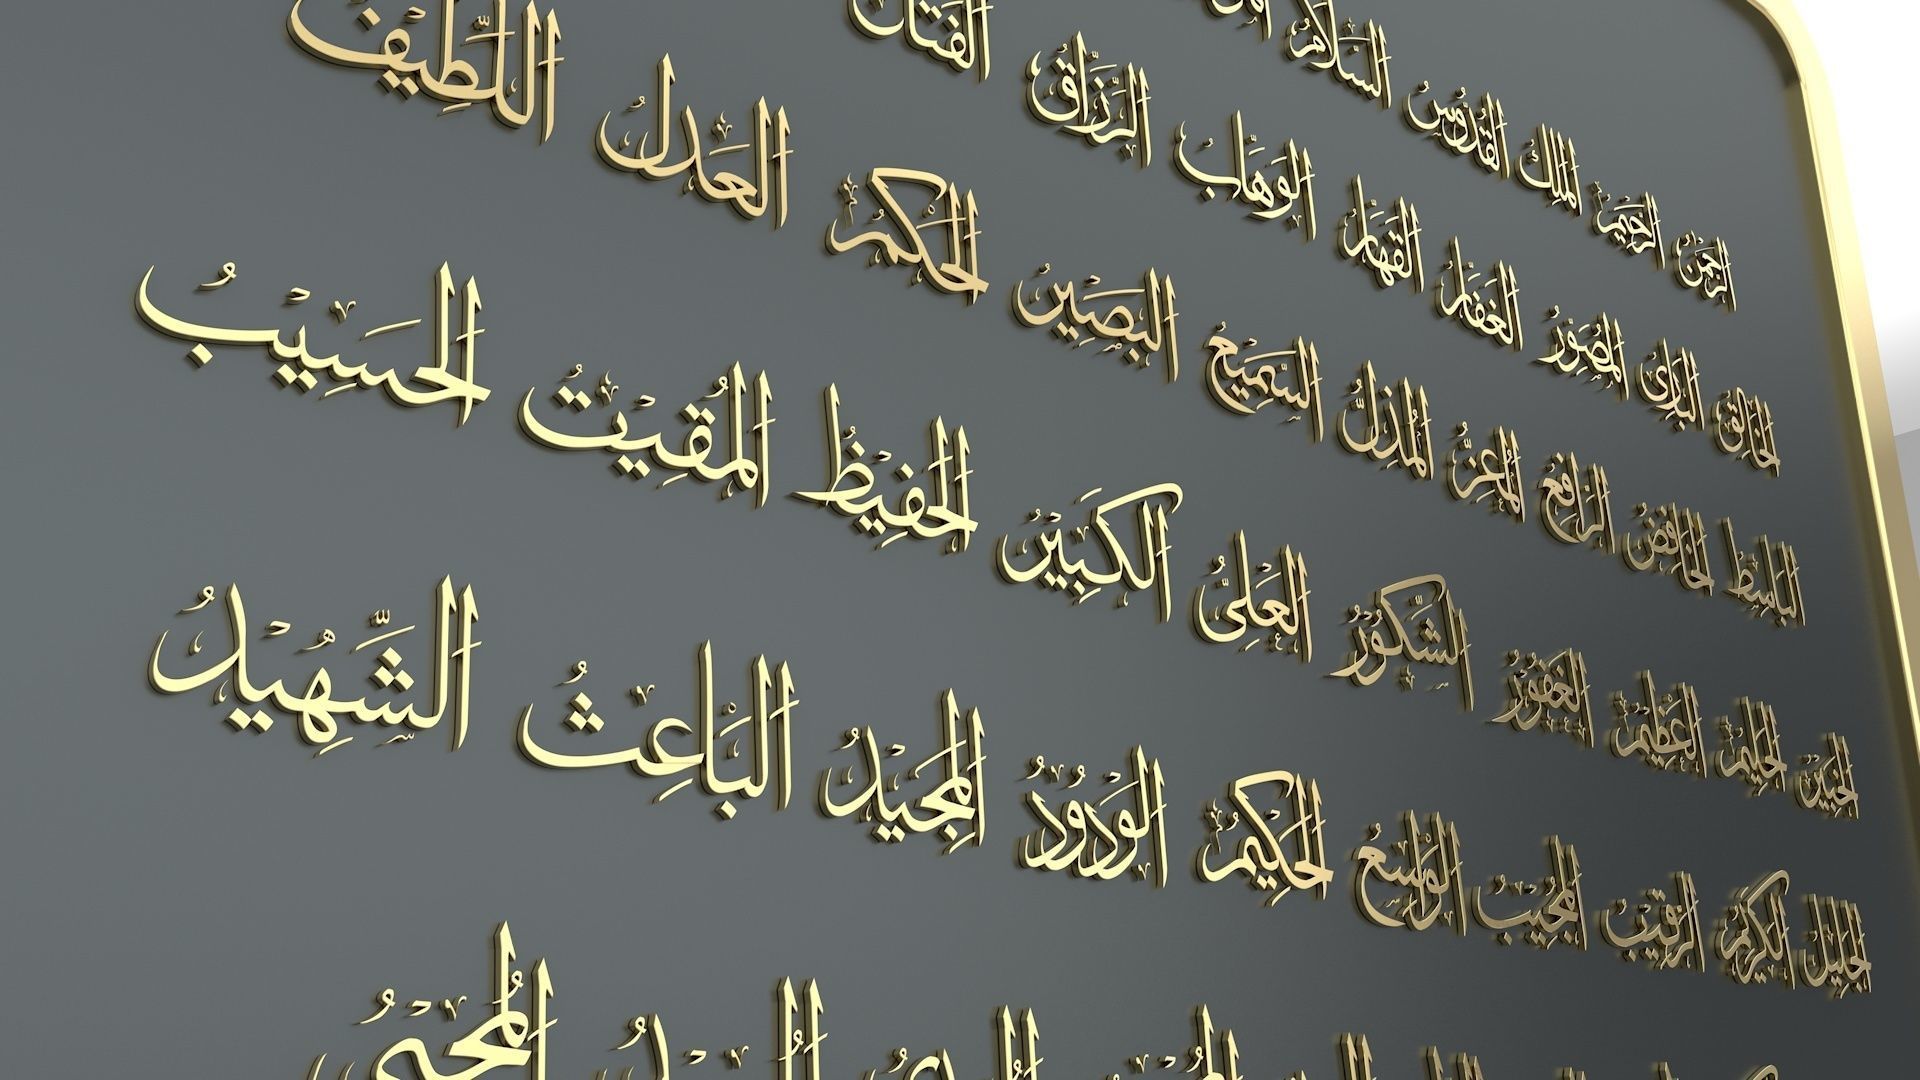 الرَّحْمَنُ الرَّحِيْمُ المَلِكُ القُدُّوْسُ السَّلَامُ
الخَالِقُ البَارِئُ المُصَوِّرُ الغَفَّارُ القَهَّارُ الوَهَّابُ الرَّزَّاقُ
البَاسِطُ الخَافِضُ الرَّافِعُ المُعِزُّ المُذِلُّ السَّمِيْعُ البَصِيْرُ الحَكَمُ العَدْلُ اللَّطِيْفُ
الخَبِيْرُ الحَلِيْمُ العَظِيْمُ الغَفُوْرُ الشَّكُوْرُ العَلِىُّ الكَبِيْرُ الحَفِيْظُ المُقِيْتُ الحَسِيْبُ
الجَلِيْلُ الكَرِيْمُ الرَّقِيْبُ المُجِيْبُ الوَاسِعُ الحَكِيْمُ الوَدُوْدُ المَجِيْدُ البَاعِثُ الشَّهِيْدُ